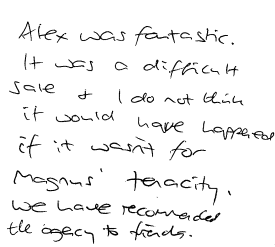 Alex was fantastic.
It was a difficult
sale & I do not think
it would have happened
if it wasn't for
Magnus' tenacity.
We have recommended
the agency to friends.